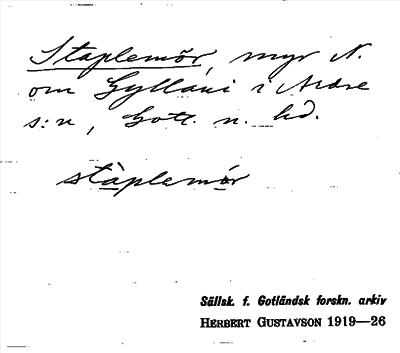 Staplemõr, myr N.
om Gyllaui i Ardre
s:n, Gotl. n. hd.
stàplemór
Sällsk. f. Gotländsk forskn. arkiv
HERBERT GUSTAVSON 1919—26